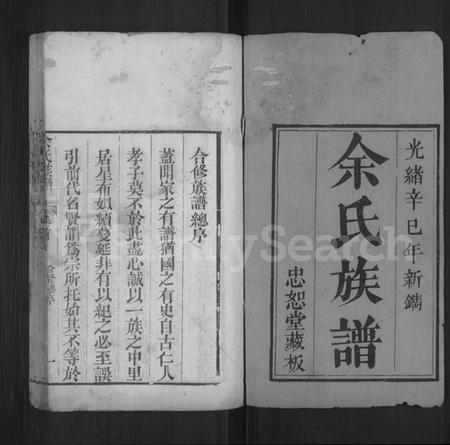 光緒辛巳年新鐫
余氏族譜
忠恕堂藏板
合修族譜總序
蓋聞家之有譜猶國之有史自古仁人
孝子莫不於此盡心誠以一族之中里
居星布如繩蔓延非有以紀之必至誤
引前代名賢謂爲宗所托始其不等於
FamilySearch